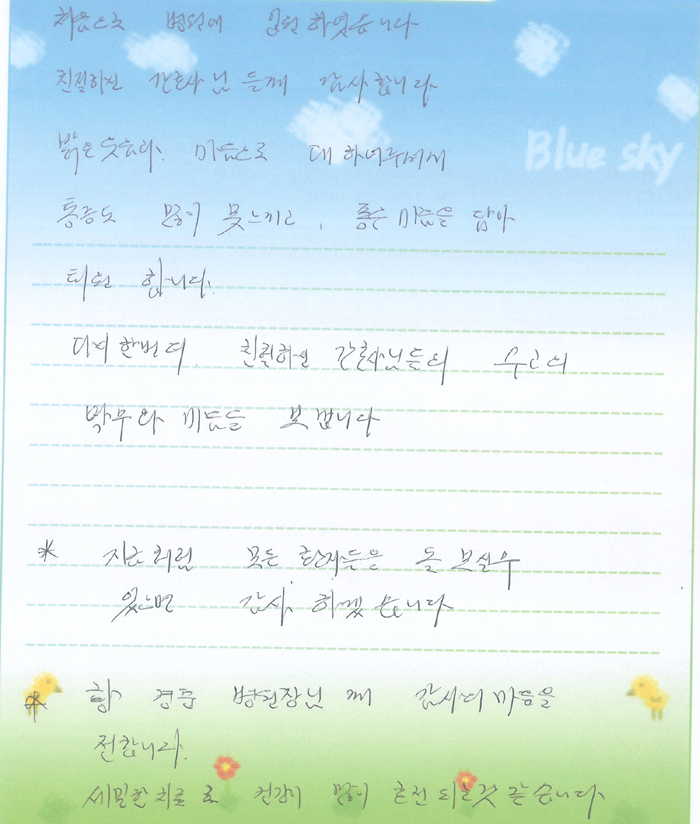 처음으로 병원에 입원 하였습니다
친절하신 간호사님 들께 감사합니다
밝은 웃음과. 마음으로 대 하여주셔서
Blue sky
통증도 많이 못느끼고, 좋은 마음을 담아
퇴원 합니다.
다시 한번 더. 친절하신 간호사님들의 수고에
박수와 마음을 보냅니다
* 지금처럼 모든 환자들을 돌 보실수
있으면 감사 하겠습니다
* 황 경준 병원장님 께 감사의 마음을
전합니다.
세밀한 치료로 건강이 많이 호전 되는것 같습니다.